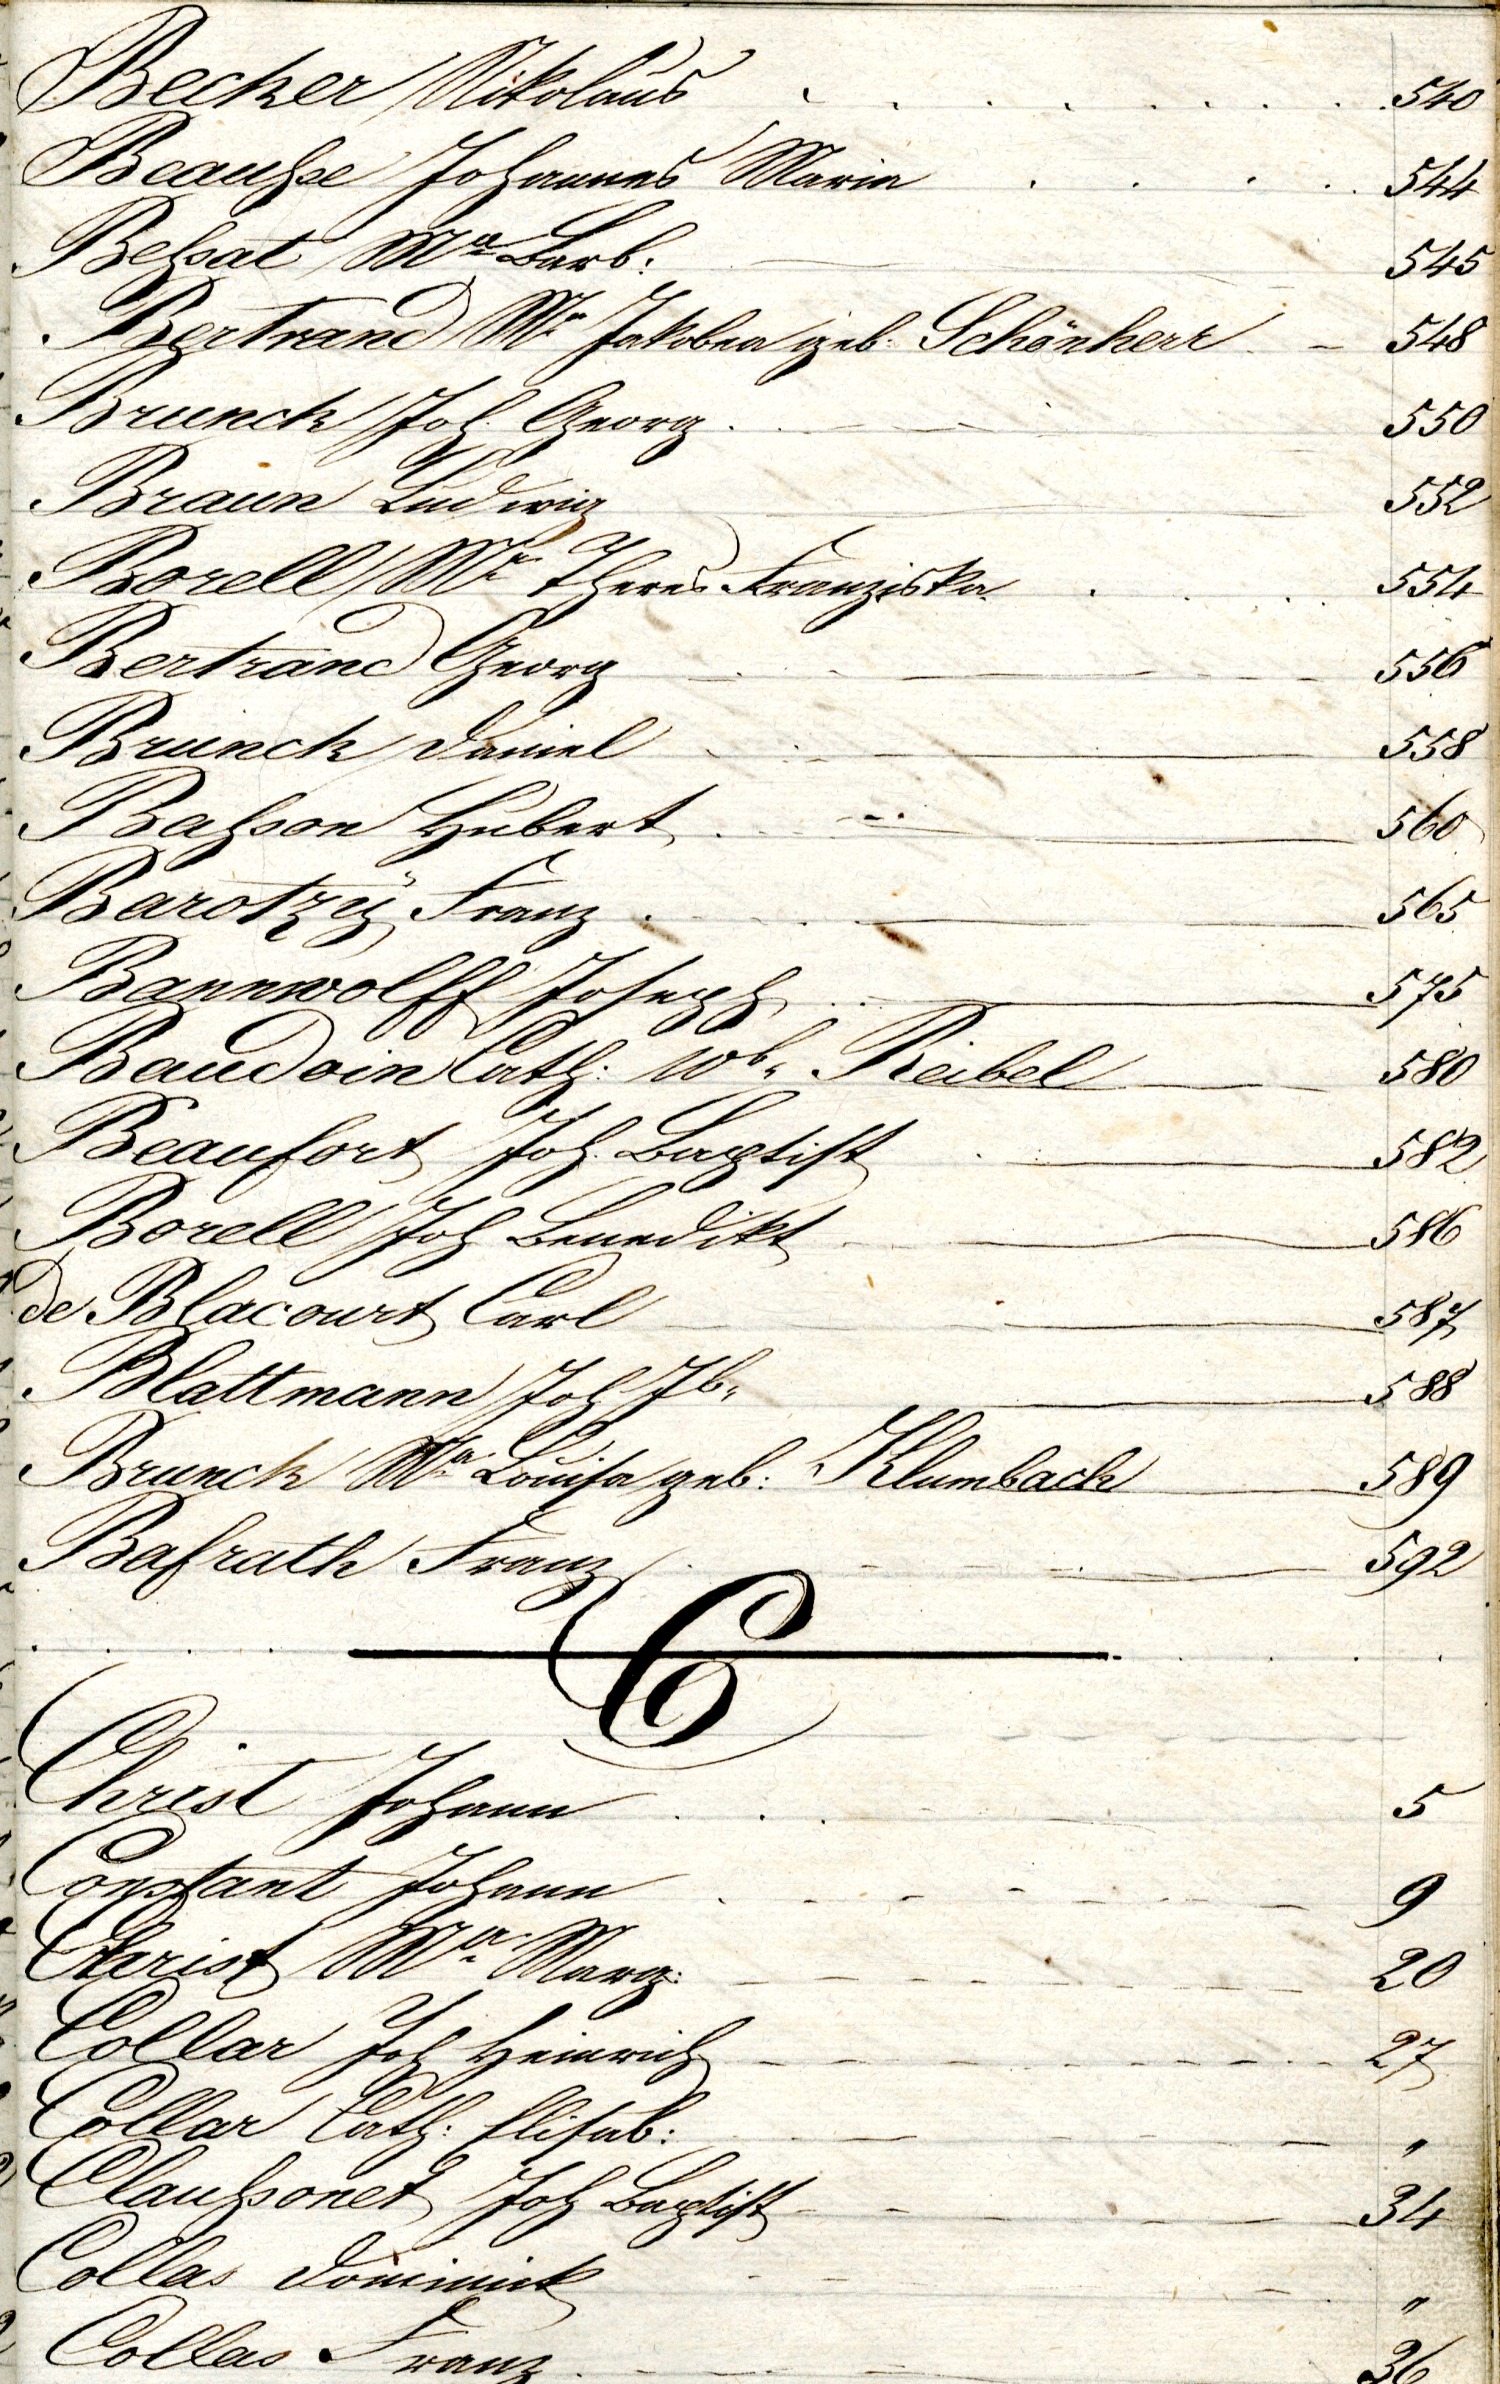 Becker Nikolaus 540
Beausse Johannes Maria 544
Bessat Ma Barb: 545
Bertrand Mr Jakobea geb: Schönherr 548
Brunck Joh. Georg 550
Braun Ludwig 552
Borell Mr Theres Franziska 554
Bertrand Georg 556
Brunck Daniel 558
Basson Hubert 560
Barotzÿ Franz 565
Bannwolff Joseph 575
Baudoin Cath: Wb. Reibel 580
Beaufort Joh. Baptist 582
Borell Joh Benedikt 586
de Blacourt Carl 587
Blattmann Joh Jb. 588
Brunck Ma Louisa geb: Klumbach 589
Bafrath Franz 592
C
Christ Johann 5
Constant Johann 9
Christ Ma Marg: 20
Collar Joh Heinrich 27
Collar Cath: Elisab: "
Claussonet Joh Baptist 34
Collas Dominick "
Collas Franz 36